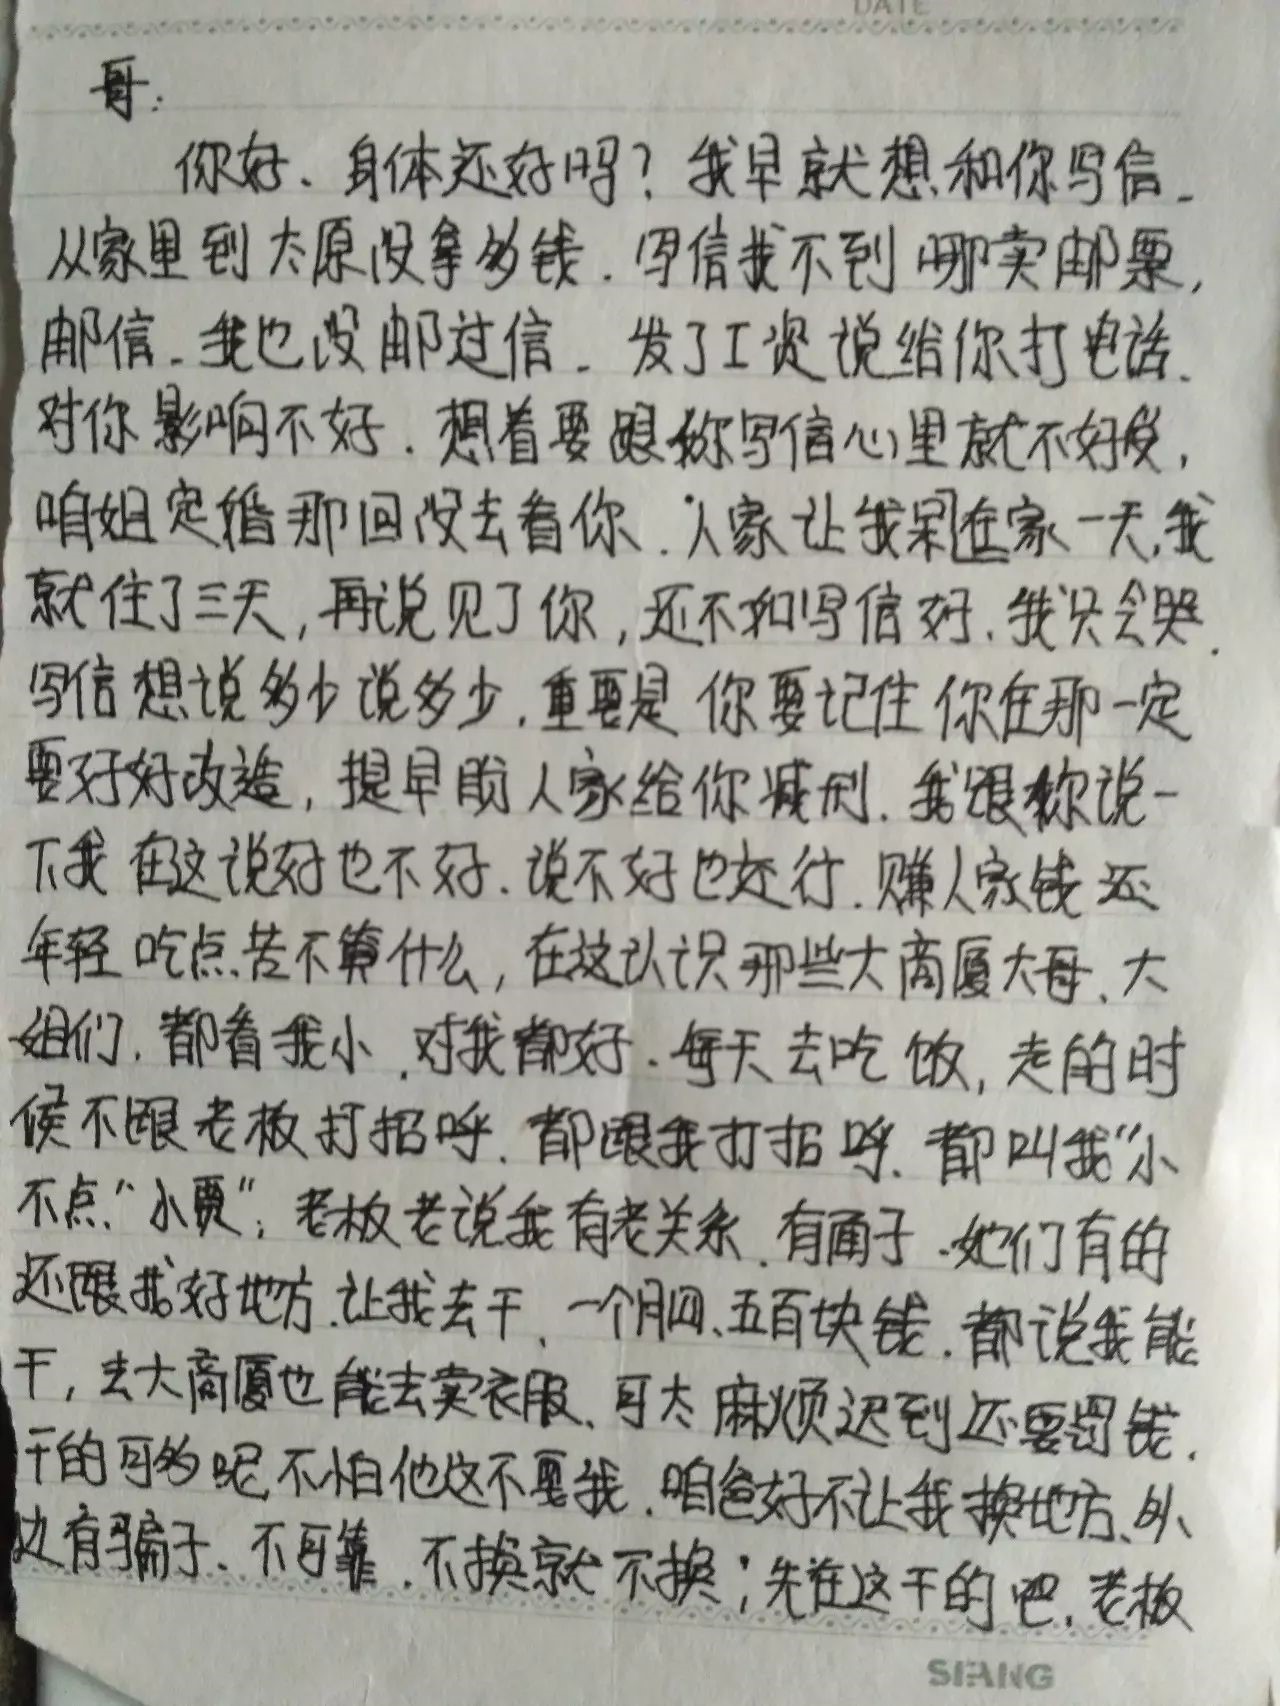 DATE
哥:
你好、身体还好吗?我早就想和你写信、
从家里到太原没拿多钱.写信我不到哪卖邮票,
邮信、我也没邮过信、发了工资说给你打电话、
对你影响不好.想着要跟你写信心里就不好受,
咱姐定婚那回没去看你.人家让我呆在家一天,我
就住了三天,再说见了你,还不如写信好、我只会哭.
写信想说多少说多少.重要是你要记住你在那一定
要好好改造,提早盼人家给你减刑.我跟你说一
下我在这说好也不好.说不好也还行.赚人家钱还
年轻吃点苦不算什么,在这认识那些大商厦大哥、大
姐们.都看我小.对我都好.每天去吃饭,走的时
候不跟老板打招呼.都跟我打招呼、都叫我“小
不点“小贾”;老板老说我有老关系.有面子.她们有的
还跟我好地方.让我去干、一个月四、五百块钱.都说我能
干,去大商厦也能去卖衣服、可太麻烦迟到还要罚钱.
干的可多呢不怕他这不要我.咱爸好不让我换地方、外
边有骗子、不可靠.不换就不换;先在这干的吧.老板
SIFANG